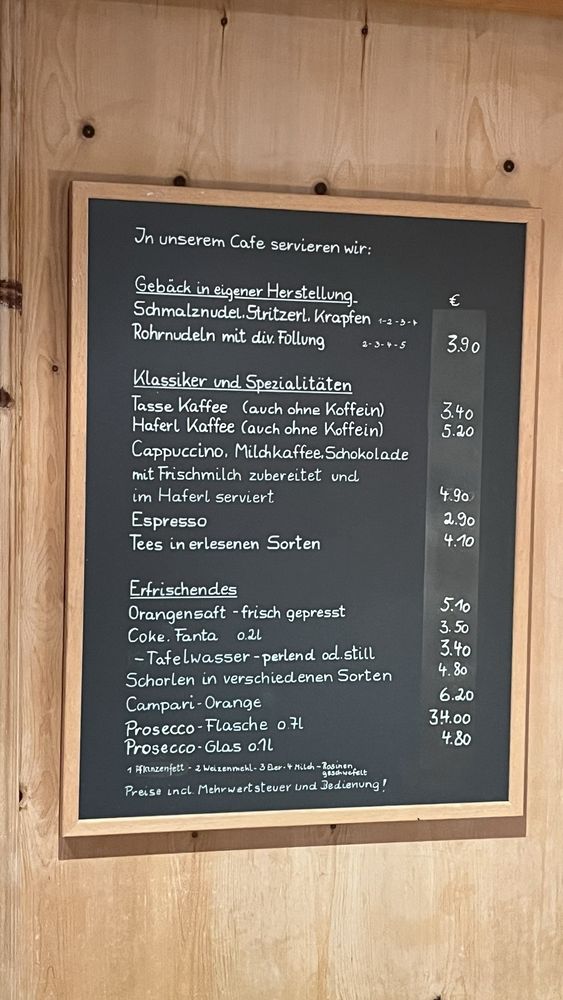 In unserem Cafe servieren wir:
Gebäck in eigener Herstellung €
Schmalznudel, Stritzerl, Krapfen 1-2-3-4
Rohrnudeln mit div. Füllung 2-3-4-5 3.90
Klassiker und Spezialitäten
Tasse Kaffee (auch ohne Koffein) 3.40
Haferl Kaffee (auch ohne Koffein) 5.20
Cappuccino, Milchkaffee, Schokolade
mit Frischmilch zubereitet und
im Haferl serviert 4.90
Espresso 2.90
Tees in erlesenen Sorten 4.10
Erfrischendes
Orangensaft - frisch gepresst 5.10
Coke, Fanta 0.2l 3.50
- Tafelwasser - perlend od. still 3.40
Schorlen in verschiedenen Sorten 4.80
Campari - Orange 6.20
Prosecco - Flasche 0.7l 34.00
Prosecco - Glas 0.1l 4.80
1 Pflanzenfett - 2 Weizenmehl - 3 Eier - 4 Milch - Rosinen
geschwefelt
Preise incl. Mehrwertsteuer und Bedienung!